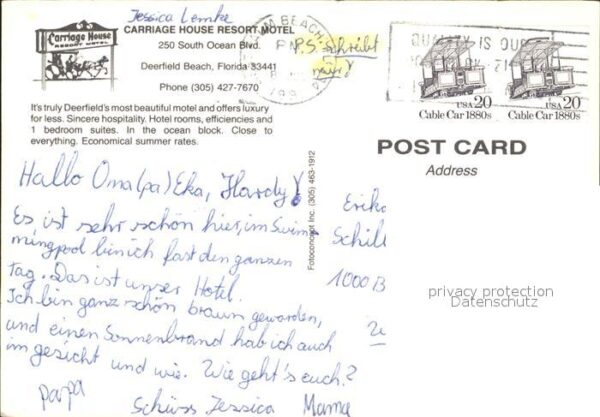 Jessica Lemke
Carriage House
RESORT MOTEL
CARRIAGE HOUSE RESORT MOTEL
250 South Ocean Blvd.
Deerfield Beach, Florida 33441
Phone (305) 427-7670
It's truly Deerfield's most beautiful motel and offers luxury
for less. Sincere hospitality. Hotel rooms, efficiencies and
1 bedroom suites. In the ocean block. Close to
everything. Economical summer rates.
BEACH,
PM
P.S. schreibt
mir!
QUALITY IS OUR
USA 20
Cable Car 1880s
USA 20
Cable Car 1880s
POST CARD
Address
Fotoconcept Inc. (305) 463-1912
Hallo Oma(pa) Eka, Hardy!
Es ist sehr schön hier, im Swim
mingpool bin ich fast den ganzen
Tag. Das ist unser Hotel.
Ich bin ganz schön braun geworden,
und einen Sonnenbrand hab ich auch
im gesicht und wie. Wie geht's euch?
papa
Schüss Jessica Mama
Erika
Schill
1000 B
privacy protection
Datenschutz